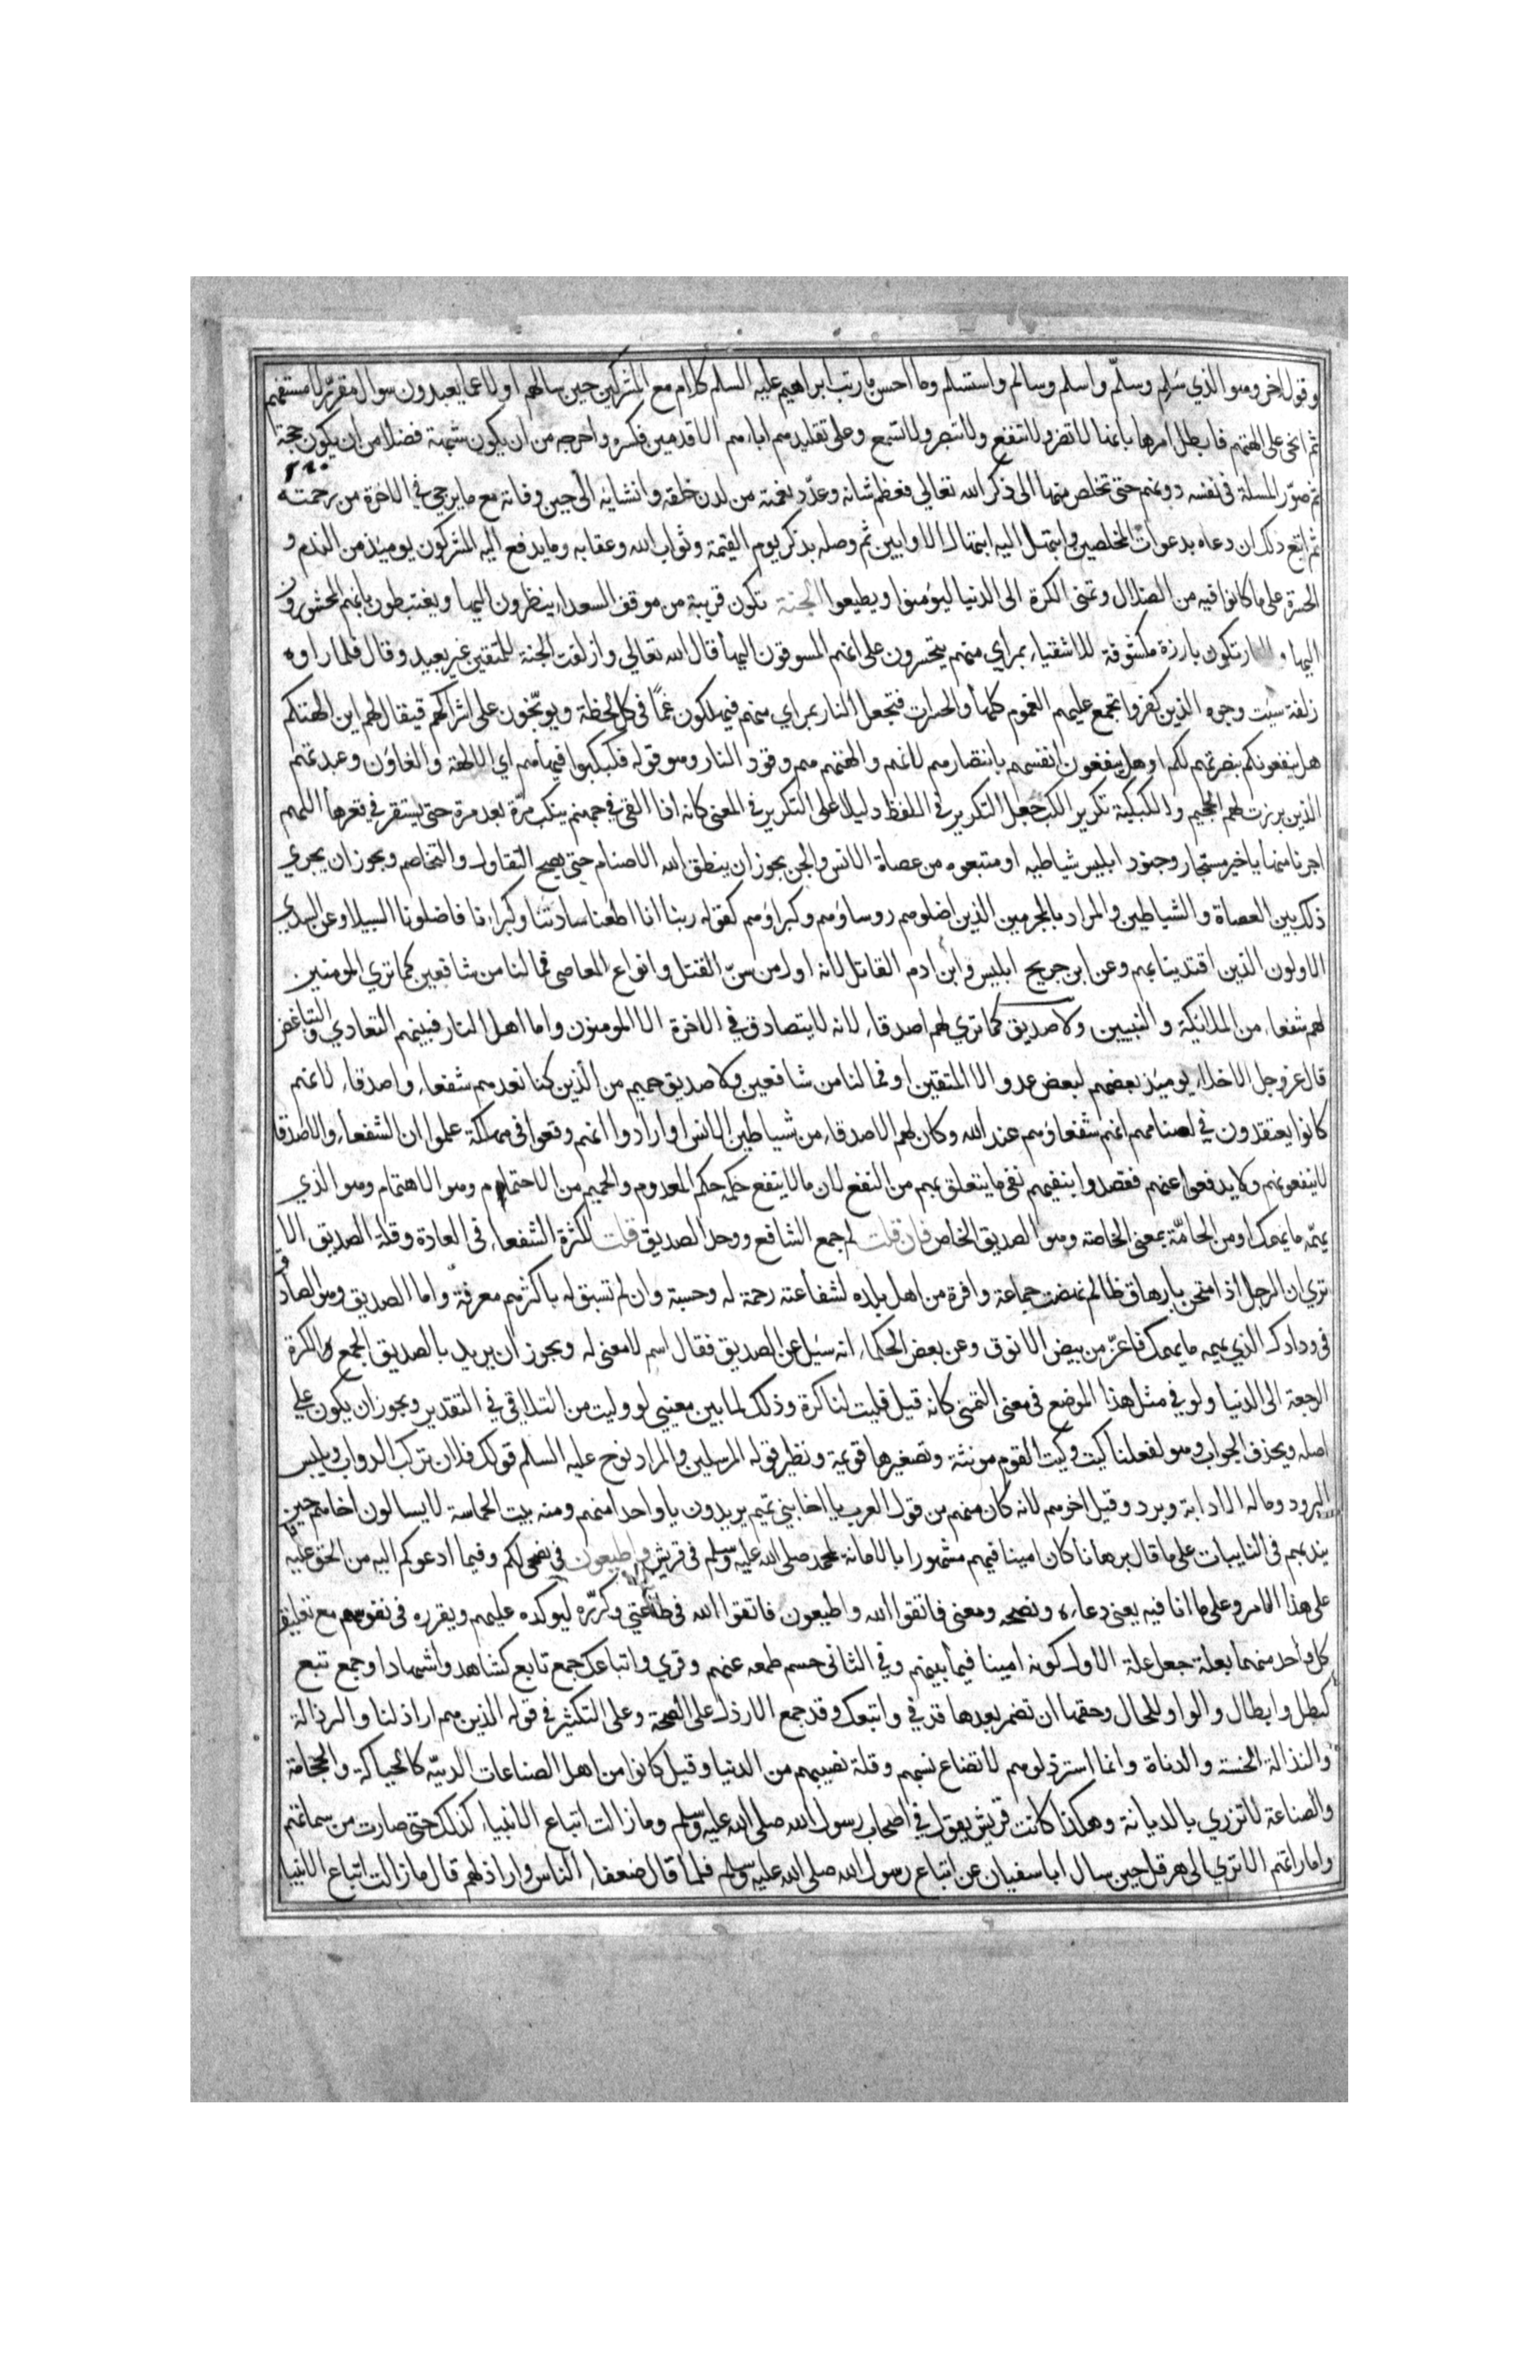 وقول اخر وهو الذي سلم وسلّم واسلم وسالم واستسلم وما احسن ما رتب ابراهيم عليه السلم كلام مع المشركين حين سالهم اولا عما يعبدون سوال مقرّر لا مستفهم
ثم انحى على الهتهم فابطل امرها بانها لا تضر ولا تنفع ولا تبصر ولا تسمع وعلى تقليدهم اباءهم الاقدمين فكسره واخرجه من ان يكون شبهة فضلا من ان يكون حجة
ثم صوّر المسلة في نفسه دونهم حتى تخلص منها الى ذكر الله تعالي فعظم شانه وعدّد نعمته من لدن خلقه وانشايه الى حين وفاته مع ما يرجي في الاخرة من رحمته
ثم اتبع ذلك ان دعاه بدعوات المخلصين وابتهل اليه ابتهال الاوابين ثم وصله بذكر يوم القيمة وثواب الله وعقابه وما يدفع اليه المشركون يوميذ من الندم و
الحسرة على ما كانوا فيه من الضلال وتمنى الكرة الى الدنيا ليومنوا ويطيعوا الجنة تكون قريبة من موقف السعداء ينظرون اليها ويغتبطون بانهم المحشورون
اليها والنار تكون بارزة مكشوفة للاشقياء بمراي منهم يتحسرون على انهم المسوقون اليها قال الله تعالي وازلفت الجنة للمتقين غير بعيد وقال فلما راوه
زلفة سيت وجوه الذين كفروا تجمع عليهم الغموم كلها والحسرات فتجعل النار بمراي منهم فيهلكون غمًا في كل لحظة ويوبّخون على اشراكهم فيقال لهم اين الهتكم
هل ينفعونكم بنصرتهم لكم او هل ينفعون انفسهم بانتصارهم لانهم والهتهم هم وقود النار وهو قوله فكبكبوا فيها هم اي الالهة والغاون وعبدتهم
الذين برزت لهم الجحيم والكبكبة تكرير الكب جعل التكرير في اللفظ دليلا على التكرير في المعنى كانه اذا القى في جهنم ينكب مرّة بعد مرة حتى يستقر في قعرها اللهم
اجرنا منها يا خير مستجار وجنود ابليس شياطيه او متبعوه من عصاة الانس والجن يجوز ان ينطق الله الاصنام حتى يصح التقاول والتخاصم ويجوز ان يجري
ذلك بين العصاة والشياطين والمراد بالمجرمين الذين اضلوهم روساوهم وكبراوهم كقوله ربنا انا اطعنا سادتنا وكبراءنا فاضلونا السبيلا وعن السدي
الاولون الذين اقتدينا بهم وعن ابن جريح ابليس وابن ادم القاتل لانه اول من سنّ القتل وانواع المعاصي فما لنا من شافعين كما تري المومنين
لهم شفعاء من الملائكة والنبيين ولا صديق كما تري لهم اصدقاء لانه لا يتصادق في الاخرة الا المومنون واما اهل النار فبينهم التعادي والتباغض
قال عز وجل الاخلاء يوميذ بعضهم لبعض عدو الا المتقين او فما لنا من شافعين ولا صديق حميم من الذين كنا نعدهم شفعاء واصدقاء لانهم
كانوا يعتقدون في اصنامهم انهم شفعاوهم عند الله وكان لهم الاصدقاء من شياطين الانس او ارادوا انهم وقعوا في مهلكة علموا ان الشفعاء والاصدقا
لا ينفعونهم ولا يدفعوا عنهم فقصدوا بنفيهم نفي ما يتعلق بهم من النفع لان ما لا ينفع حكمه حكم المعدوم والحميم من الاحتمام وهو الاهتمام وهو الذي
يهمّه ما يهمك او من الحامّة بمعنى الخاصة وهو الصديق الخاص فان قلت لم جمع الشافع ووحد الصديق قلت لكثرة الشفعاء في العادة وقلة الصديق الا
تري ان الرجل اذا امتحن بارهاق ظالم نهضت جماعة وافرة من اهل بلده لشفاعته رحمة له وحسبة وان لم تسبق له باكثرهم معرفة واما الصديق وهو الصادق
في ودادك الذي يهمه ما يهمك فاعزّ من بيض الانوق وعن بعض الحكماء انه سيل عن الصديق فقال اسم لا معنى له ويجوز ان يريد بالصديق الجمع والكرة
الرجعة الى الدنيا ولو في مثل هذا الموضع في معنى التمنى كانه قيل فليت لنا كرة وذلك لما بين معنيي لو وليت من التلاقي في التقدير ويجوز ان يكون علي
اصله ويحذف الجواب وهو لفعلنا كيت وكيت القوم مونثة وتصغيرها قويمة ونظير قوله المرسلين والمراد نوح عليه السلم قولك فلان تركب الدواب ويلبس
البرود وماله الا دابة وبرد وقيل اخوهم لانه كان منهم من قول العرب يا اخا بني تميم يريدون يا واحدا منهم ومنه بيت الحماسة لا يسالون اخاهم حين
يندبهم في النايبات على ما قال برهانا كان امينا فيهم مشهورا بالامانة كمحمد صلى الله عليه وسلم في قريش واطيعون في نصحي لكم وفيما ادعوكم اليه من الحق عليه
على هذا الامر وعلى ما انا فيه يعنى دعاءه ونصحه ومعنى فاتقوا الله واطيعون فاتقوا الله في طاعتي وكرّره ليوكده عليهم ويقرره في نفوسهم مع تعليق
كل واحد منهما بعلة جعل علة الاول كونه امينا فيما بينهم وفي الثاني حسم طمعه عنهم وقري واتباعك جمع تابع كشاهد واشهاد او جمع تبع
كبطل وابطال والواو للحال وحقها ان تضمر بعدها قد في واتبعك وقد جمع الارذل على الصحة وعلى التكثير في قوله الذين هم اراذلنا والرذالة
والنذالة الخسة والدناة وانما استرذلوهم لاتضاع نسبهم وقلة نصيبهم من الدنيا وقيل كانوا من اهل الصناعات الدنيّه كالحياكة والحجامة
والصناعة لا تزري بالديانة وهكذا كانت قريش يقول في اصحاب رسول الله صلى الله عليه وسلم وما زالت اتباع الانبياء كذلك حتى صارت من سماتهم
واماراتهم الا تري الى هرقل حين سال ابا سفيان عن اتباع رسول الله صلى الله عليه وسلم فلما قال ضعفاء الناس واراذلهم قال ما زالت اتباع الانبيا